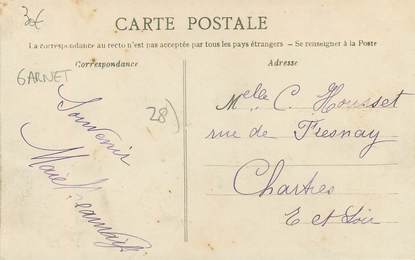 3€
CARTE POSTALE
La correspondance au recto n'est pas acceptée par tous les pays étrangers – Se renseigner à la Poste
Correspondance
Adresse
GARNET
28)
Souvenir
Marie
Melle C. Housset
rue de Fresnay
Chartres
E et Loir